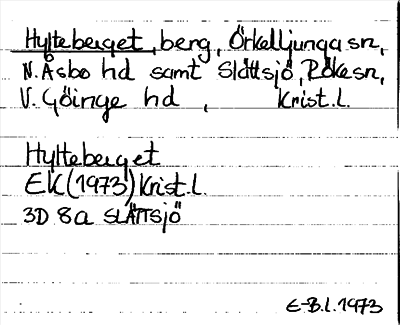 Hylteberget, berg, Örkelljunga sn,
N. Åsbo hd samt Slättsjö, Röke sn,
V. Göinge hd , Krist. l.
Hylteberget
EK (1973) Krist. l.
3D 8a SLÄTTSJÖ
E-B. l. 1973